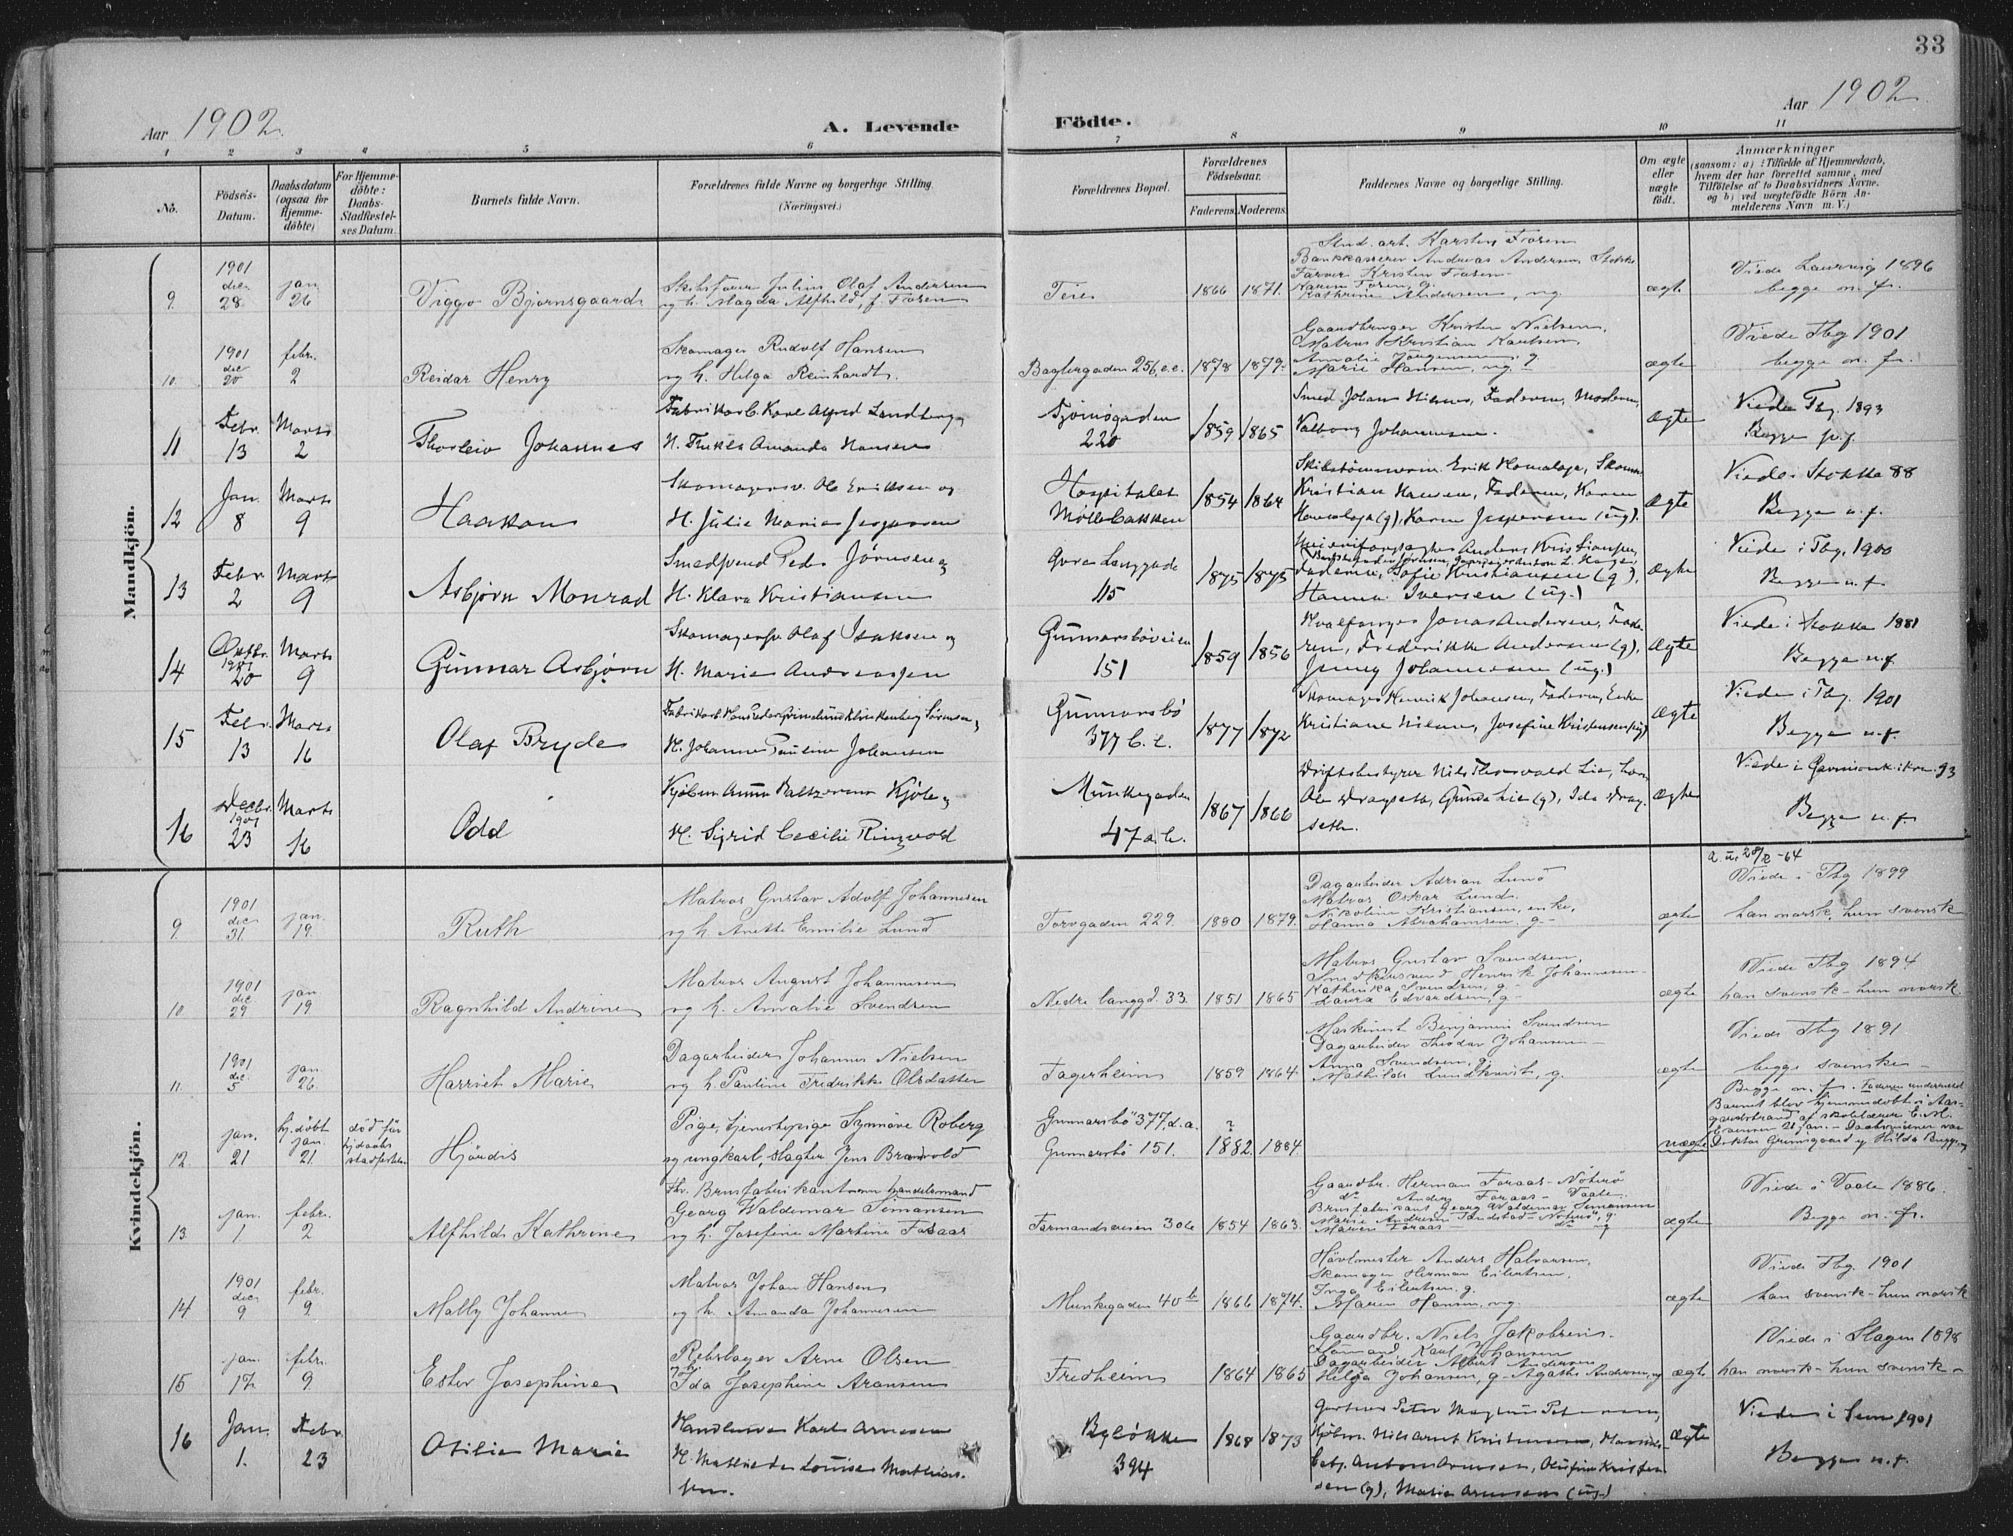 33
Aar 1902.
A. Levende Födte.
Aar 1902.
1 2 3 4 5 6 7 8 9 10 11
No.
Födsels-Datum.
Daabsdatum (ogsaa for Hjemme-döbte)
For Hjemme-döbte: Daabs-Stadfæstel-ses Datum.
Barnets fulde Navn.
Forældrenes fulde Navne og borgerlige Stilling.
(Næringsvei.)
Forældrenes Bopæl.
Forældrenes Födselsaar.
Faderens. Moderens.
Faddernes Navne og borgerlige Stilling.
Om ægte eller uægte födt.
Anmærkninger
(saasom: a) i Tilfælde af Hjemmedaab,
hvem der har forrettet samme, med
Tilföielse af to Daabsvidners Navne,
og b) ved uægtefödte Börn An-
melderens Navn m. V.)
Mandkjön.
9. 1901 dec 28 jan 26 Viggo Bjørnsgaard
Julius Olaf Andersen
og h. Magda Alfhild, f. Foren
Teie 1866 1871.
Stud. art. Karsten Foren
Bankkasserer Andreas Andersen, Stokke
Farver Kristen Foren
Maren Foren, g.
Kathrine Andersen, ug.
ægte
Viede Laurvig 1896
begge n. fr.
10. 1901 dec 20 febr. 2 Reidar Henry
Skomager Rudolf Hansen
og h. Helga Reinhardt.
Baglergaden 256, e.e. 1878 1879.
Gaardbruger Kristen Nielsen,
Matros Kristian Karlsen,
Amalie Jørgensen, g.
Marie Hansen, ug.
ægte
Viede Tbg 1901
begge n. fr.
11 Febr. 13 Marts 2 Thorleiv Johannes
Fabrikarb. Karl Alfred Landberg
H. Amanda Hansen
Tjømøgaden 220 1859 1865
Smed Johan Nilsen, Faderen, Moderen,
Valborg Johannesen.
Ægte
Viede Tbg. 1893
Begge
12 Jan. 8 Marts 9 Haakon
Skomagersv. Ole Eriksen og
H. Julie Marie Jespersen
Hospitalet Møllebakken 1854 1864
Skibstømmerm. Erik
Kristian Hansen, Faderen, Karen
(g), Karen Jespersen (ug).
Ægte
Viede i Stokke 88
Begge n. f.
13 Febr 2 Marts 9 Asbjørn Monrad
Smedsvend Peder Jørnsen og
H. Klara Kristiansen
Øvre Langgade 115 1875 1875
Anders Kristiansen,
Faderne, Sofie Kristiansen (g),
Hanna Iversen (ug.)
Ægte
Viede i Tbg. 1900
Begge n. f.
14 Oktbr. 1901 20 Marts 9 Gunnar Asbjørn
Skomagersv. Olaf Isaksen og
H. Marie Andreassen
Gunnarsbøveien 151 1859 1856
Hvalfanger Jonas Andersen, Fade-
ren, Frederikke Andersen (g),
Jenny Johannesen (ug.)
Ægte
Viede i Stokke 1881
Begge n. f
15 Febr. 13 Marts 16 Olaf Bryde
H. Johanne Pauline Johansen
Gunnarsbø 377 b. c. 1877 1872
Skomager Henrik Johansen, Faderen, Enke
Kristiane Nilsen, Josefine Kristensen (ug)
Ægte
Viede i Tbg. 1901
Begge n. f.
16 Decbr. 1901 23 Marts 16 Odd
Kjøbm. Kjøle og
H. Sigrid Cecilie Ringvold
Munkegaden 47 a. b. 1867 1866
Driftsbestyrer Nils Thorvald Lie,
Ole Dragseth, Gunda Lie (g), Ida Drag-
seth.
Ægte
Viede i 93
Begge n. f.
Kvindekjön.
9. 1901 dec 31 jan. 19. Ruth
Matros Gustav Adolf Johannesen
og h. Anette Emilie Lund
Torvgaden 229. 1880 1879.
Dagarbeider Adrian Lund
Matros Oskar Lund
Nikoline Kristiansen, enke,
Hanna Abrahamsen, g
ægte
Viede i Tbg 1899
han norsk, hun svensk
10 1901 dec 29 jan 19 Ragnhild Andrine
Matros August Johannesen
og h. Amalie Svendsen
Nedre langgd. 33. 1851 1865
Matros Gustav Svendsen,
Smedesvend Henrik Johannesen
Kathinka Svendsen, g
Laura Edvardsen, g
ægte
Viede Tbg 1894
han svensk - hun norsk.
11. 1901 dec. 5 jan. 26. Harriet Marie
Dagarbeider Johannes Nielsen
og h. Pauline Fredrikke Olsdatter
Fagerheim 1859 1864.
Maskinist Benjamin Svendsen
Dagarbeider Theodor Johansen
Anna Svendsen, g.
Mathilde Lundkvist, g.
ægte
Viede Tbg 1891
begge svenske
12 jan. 21 hj. døbt jan. 21. død før hj.daabs stadfæstelse Hjørdis
Pige, tjenestepige Synnøve Roberg
og ungkarl, slagter Jens Branvold
Gunnarsbø 377, d. a.
Gunnarsbø 151. ? 1882. 1884.
uægte
Begge n. fr. Faderen underrettet
Barnet blev hjemmedøbt i Aas-
gaardstrand af skolelærer E. M.
21 jan. - Daabsvidner var
Doktor Grimsgaard og Hilda
13 jan. 1 febr. 2 Alfhild Kathrine
Thv. Brusfabrikant handelsmand
Georg Waldemar Simonsen
og h. Josefine Martine Foraas
Farmandsveien 30b 1854 1863.
Gaardbr. Herman Foraas - Nøterø
do Anders Foraas - Vaale.
Brusfabrikant Georg Waldemar Simonsen
Maren Foraas
ægte
Viede i Vaale 1886.
Begge n. fr.
14 1901 dec. 9 febr. 9 Mally Johanne
Matros Johan Hansen
og h. Amanda Johannesen
Munkegaden 40 b 1866 1874.
Hövlmester Anders Halvorsen,
Skomager Herman Eilertsen,
Inga Eilertsen, g.
Maren Hansen, ug.
ægte
Viede Tbg. 1901
han svensk - hun norsk
15 jan. 17 febr. 9. Ester Josephine
Rebslager Arne Olsen
og h. Ida Josephine Aronsen
Fredheim 1864 1865
Gaardbr. Niels Jakobsen.
Sømand, Karl Johansen
Dagarbeider Albert Andersen
Helga Johansen, g - Agathe Andersen, ug
ægte
Viede i Slagen 1898
han norsk - hun svensk -
16 Jan. 1. Febr. 23 Otilie Marie
Karl Arnesen
H. Mathilde Louise Mathias-
sen.
Byløkke 394 1868 1873
Peter Magnus Petersen,
Kjøbm. Nils Arnt Kristensen,
Anton Arnesen, Olufine Kristen-
sen (g), Marie Arnesen (ug.)
Ægte
Viede i Sem 1901
Begge n. f.